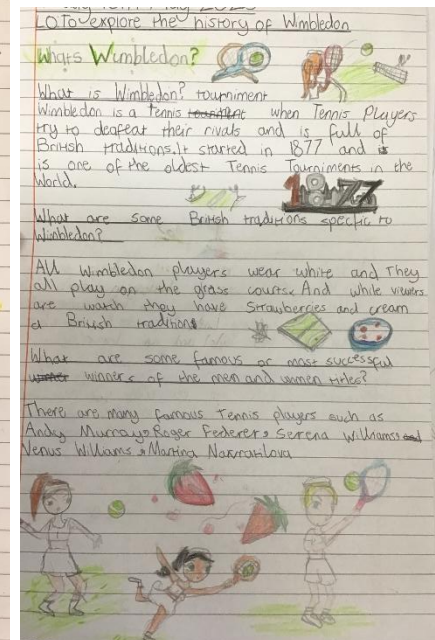 LO To explore the history of Wimbledon
Whats Wimbledon?
What is Wimbledon? tourniment
Wimbledon is a tennis when Tennis Players
try to deafeat their rivals and is full of
British traditions.It started in 1877 and is
is one of the oldest Tennis Tourniments in the
World.
1877
What are some British traditions specfic to
Wimbledon?
All Wimbledon players wear white and They
all play on the grass courts. And while viewers
are watch they have Strawberries and cream
a British traditions
What are some famous or most successful
winners of the men and women titles?
There are many famous Tennis players such as
Andy Murray, Roger Federer, Serena Williams
Venus Williams, Martina